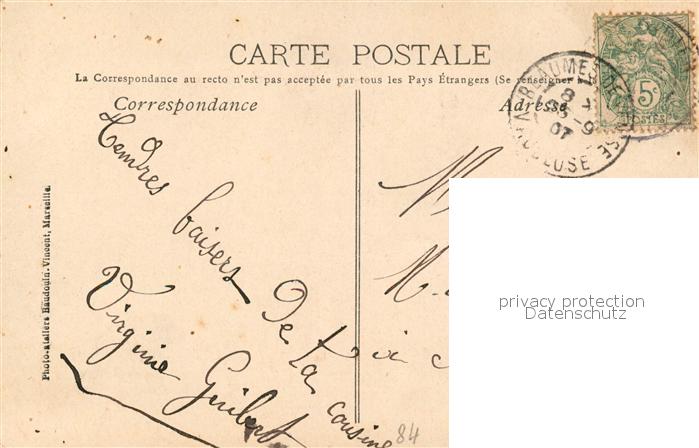 CARTE POSTALE
La Correspondance au recto n'est pas acceptée par tous les Pays Étrangers (Se renseigner
Correspondance
Adresse
Tendres
baisers
De ta
cousine
Virginie
Guibert
M
M.
à
5c
POSTES
BEAUMES-DE
VAUCLUSE
8
-9
07
Photo-ateliers Baudouin. Vincent, Marseille.
privacy protection
Datenschutz
84